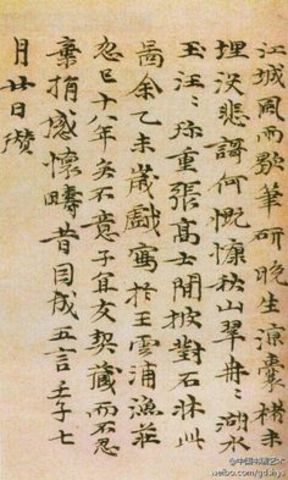 江城風雨歇筆研晚生涼囊楮未
埋没悲謌何慨慷秋山翠冉〻湖水
玉汪〻珎重張高士閒披對石牀此
啚余乙未歲戲寫於王雲浦漁莊
忽已十八年矣不意子宜友契藏而不忍
棄捐感懷疇昔因成五言壬子七
月廿日瓚
@中国书画艺术
weibo.com/gdshys